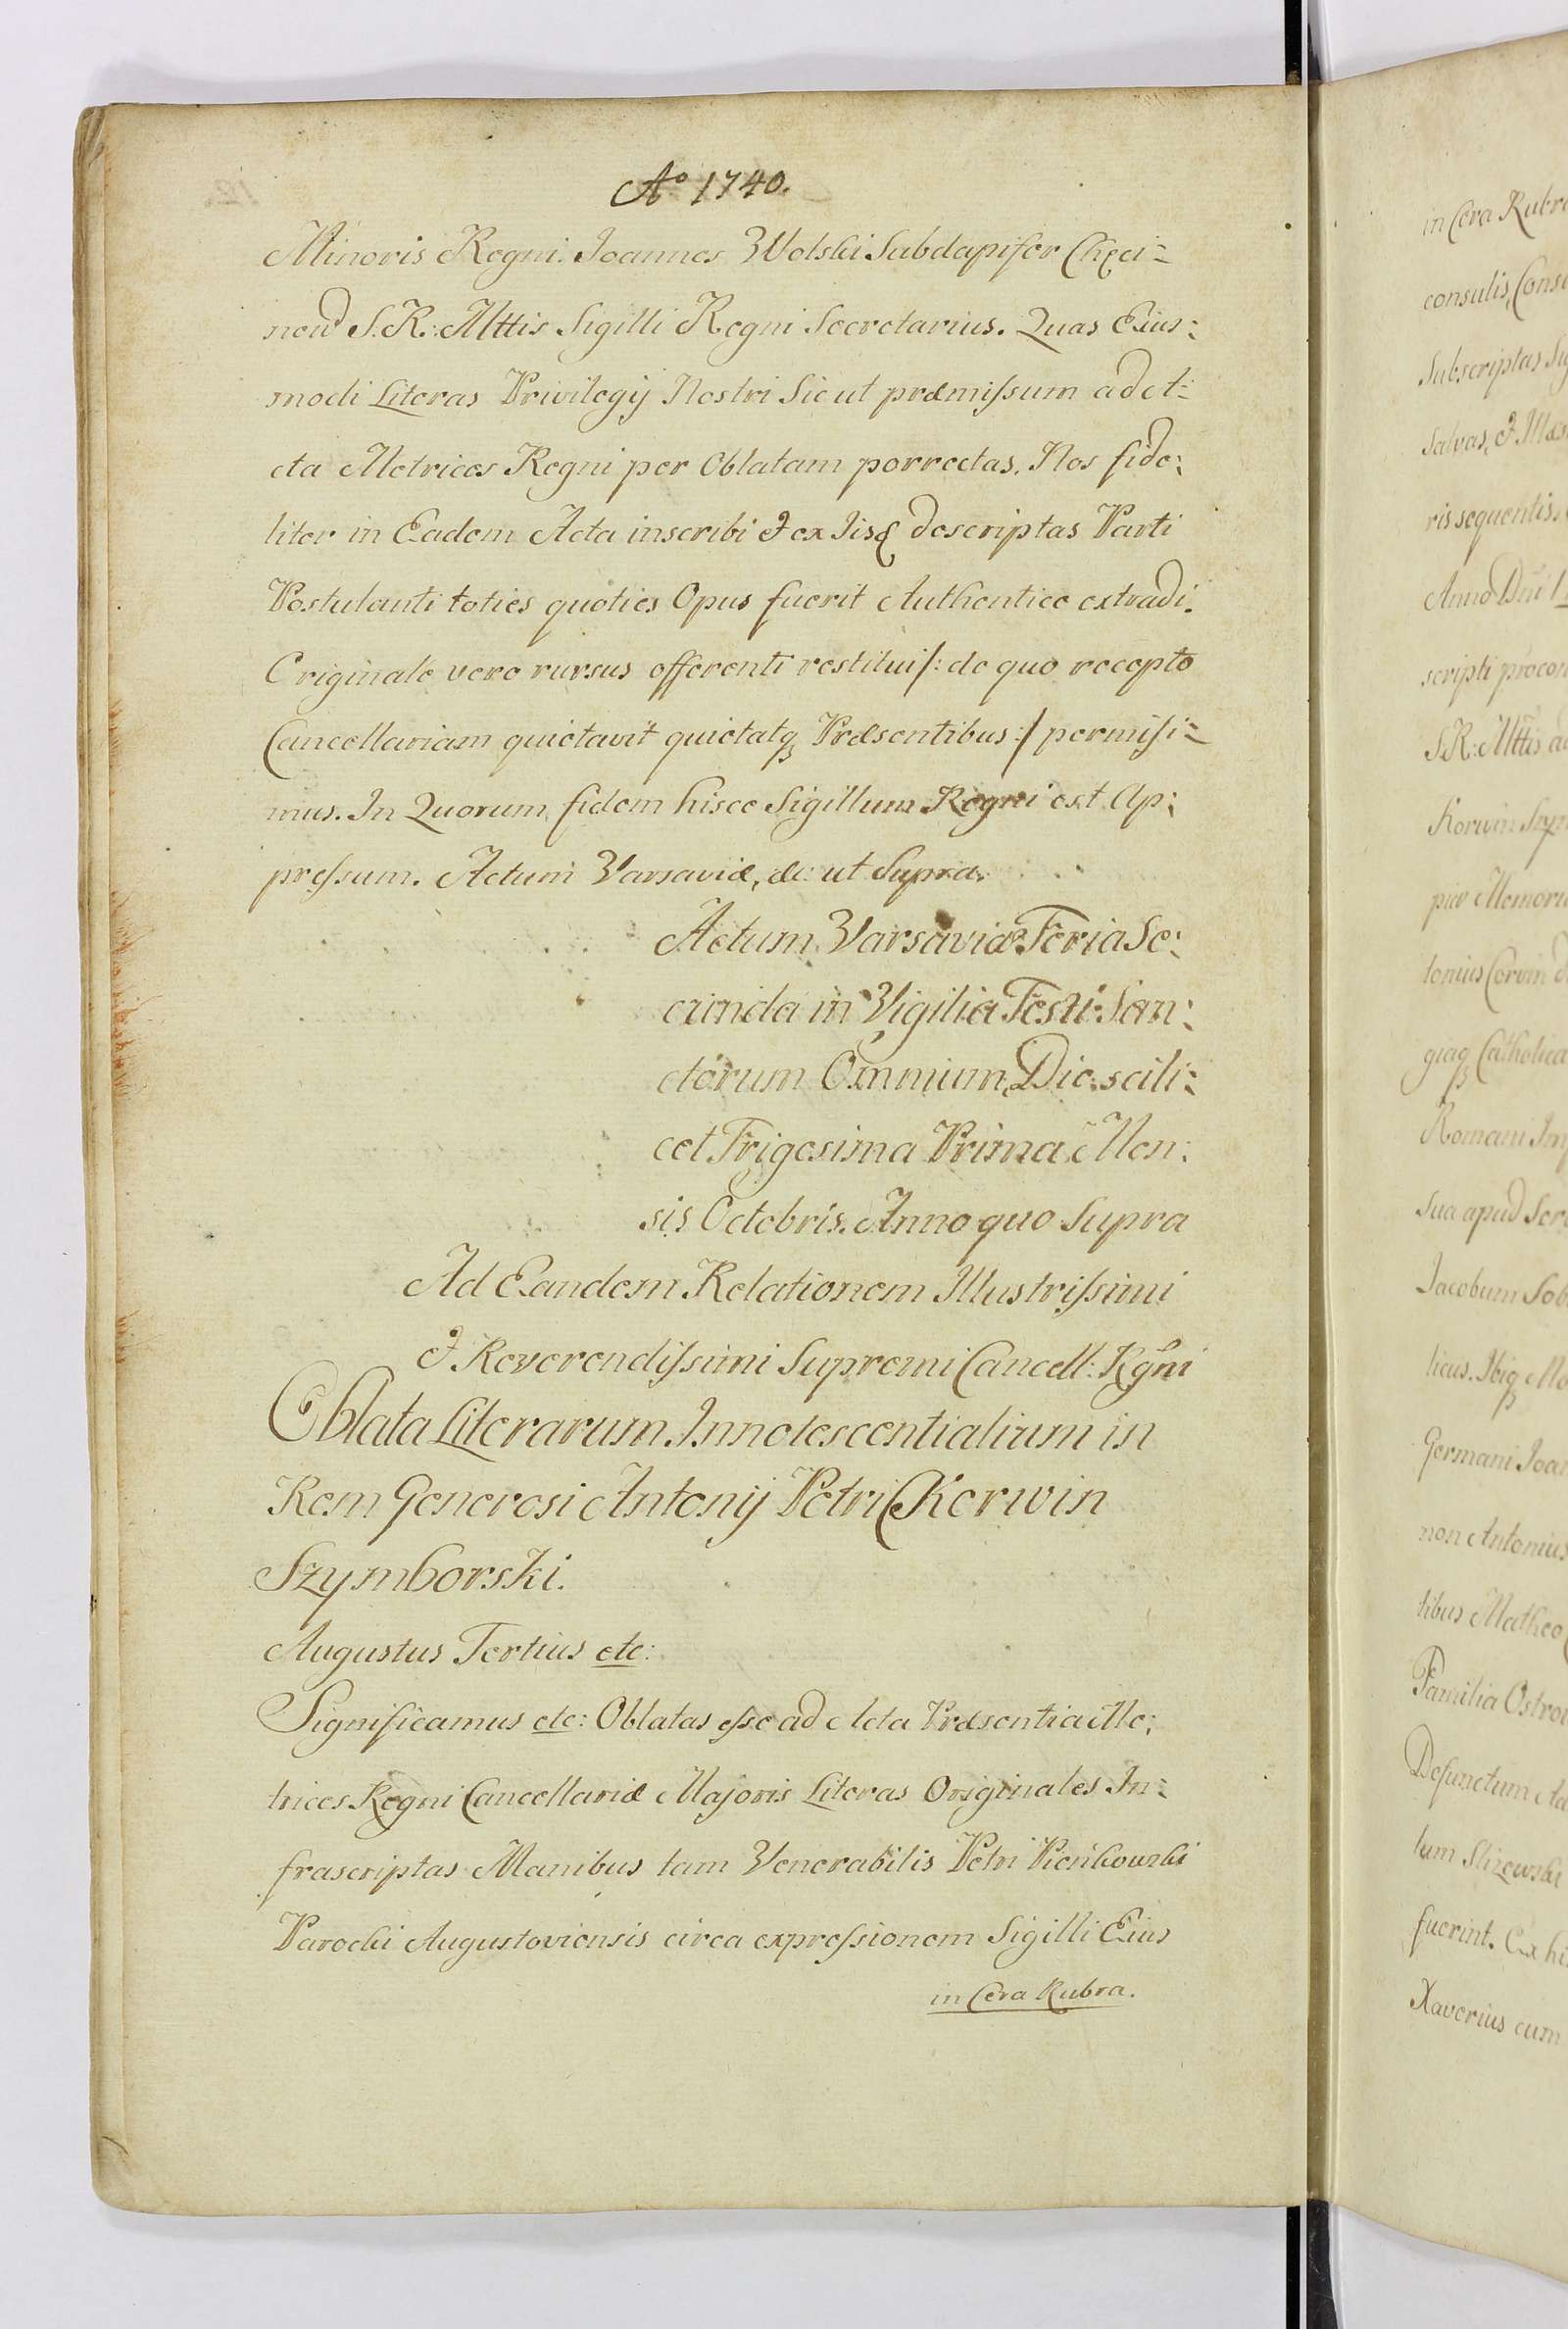 Aº 1740.
Minoris Regni. Joannes Wolski Subdapifer Chęci=
nen S.R: Mttis Sigilli Regni Secretarius. Quas Eius:
modi Literas Privilegij Nostri Sicut præmissum ad A=
cta Metrices Regni per Oblatam porrectas, Nos fide:
liter in Eadem Acta inscribi & ex Iisq descriptas Parti
Postulanti toties quoties Opus fuerit Authentice extradi.
Originale vero rursus offerenti restitui /: de quo recepto
Cancellariam quietavit quietatq Præsentibus :/ permisi=
mus. In Quorum fidem hisce Sigillum Regni est Ap:
pressum. Actum Varsaviæ, &c: ut Supra.
Actum Varsaviæ Feria Se:
cunda in Vigilia Festi San:
ctorum Omnium Die scili:
cet Trigesima Prima Men:
sis Octobris. Anno quo Supra
Ad Eandem Relationem Illustrissimi
& Reverendissimi Supremi Cancell: Rgni
Oblata Literarum Innotescentialium in
Rem Generosi Antonij Petri Korwin
Szymborski.
Augustus Tertius etc:
Significamus etc: Oblatas esse ad Acta Præsentia Me:
trices Regni Cancellariæ Majoris Literas Originales In:
frascriptas Manibus tam Venerabilis Petri Pieńkowski
Parochi Augustoviensis circa expressionem Sigilli Eius
in Cera Rubra.
in Cera Rubra
consulis, Cons
Subscriptas
Salvas, &
ris sequentis.
Anno Dni
scripti procon
S.R: Mttis
Korwin Szym
piæ Memoriæ
tonius Corvin
giaq Catholica
Romani Imp
Sua apud
Jacobum Sob
licus. Ibiq
Germani Joan
non Antonius
tibus Matheo
Familia Ostro
Defunctum
tum
fuerint. Ex
Xaverius cum